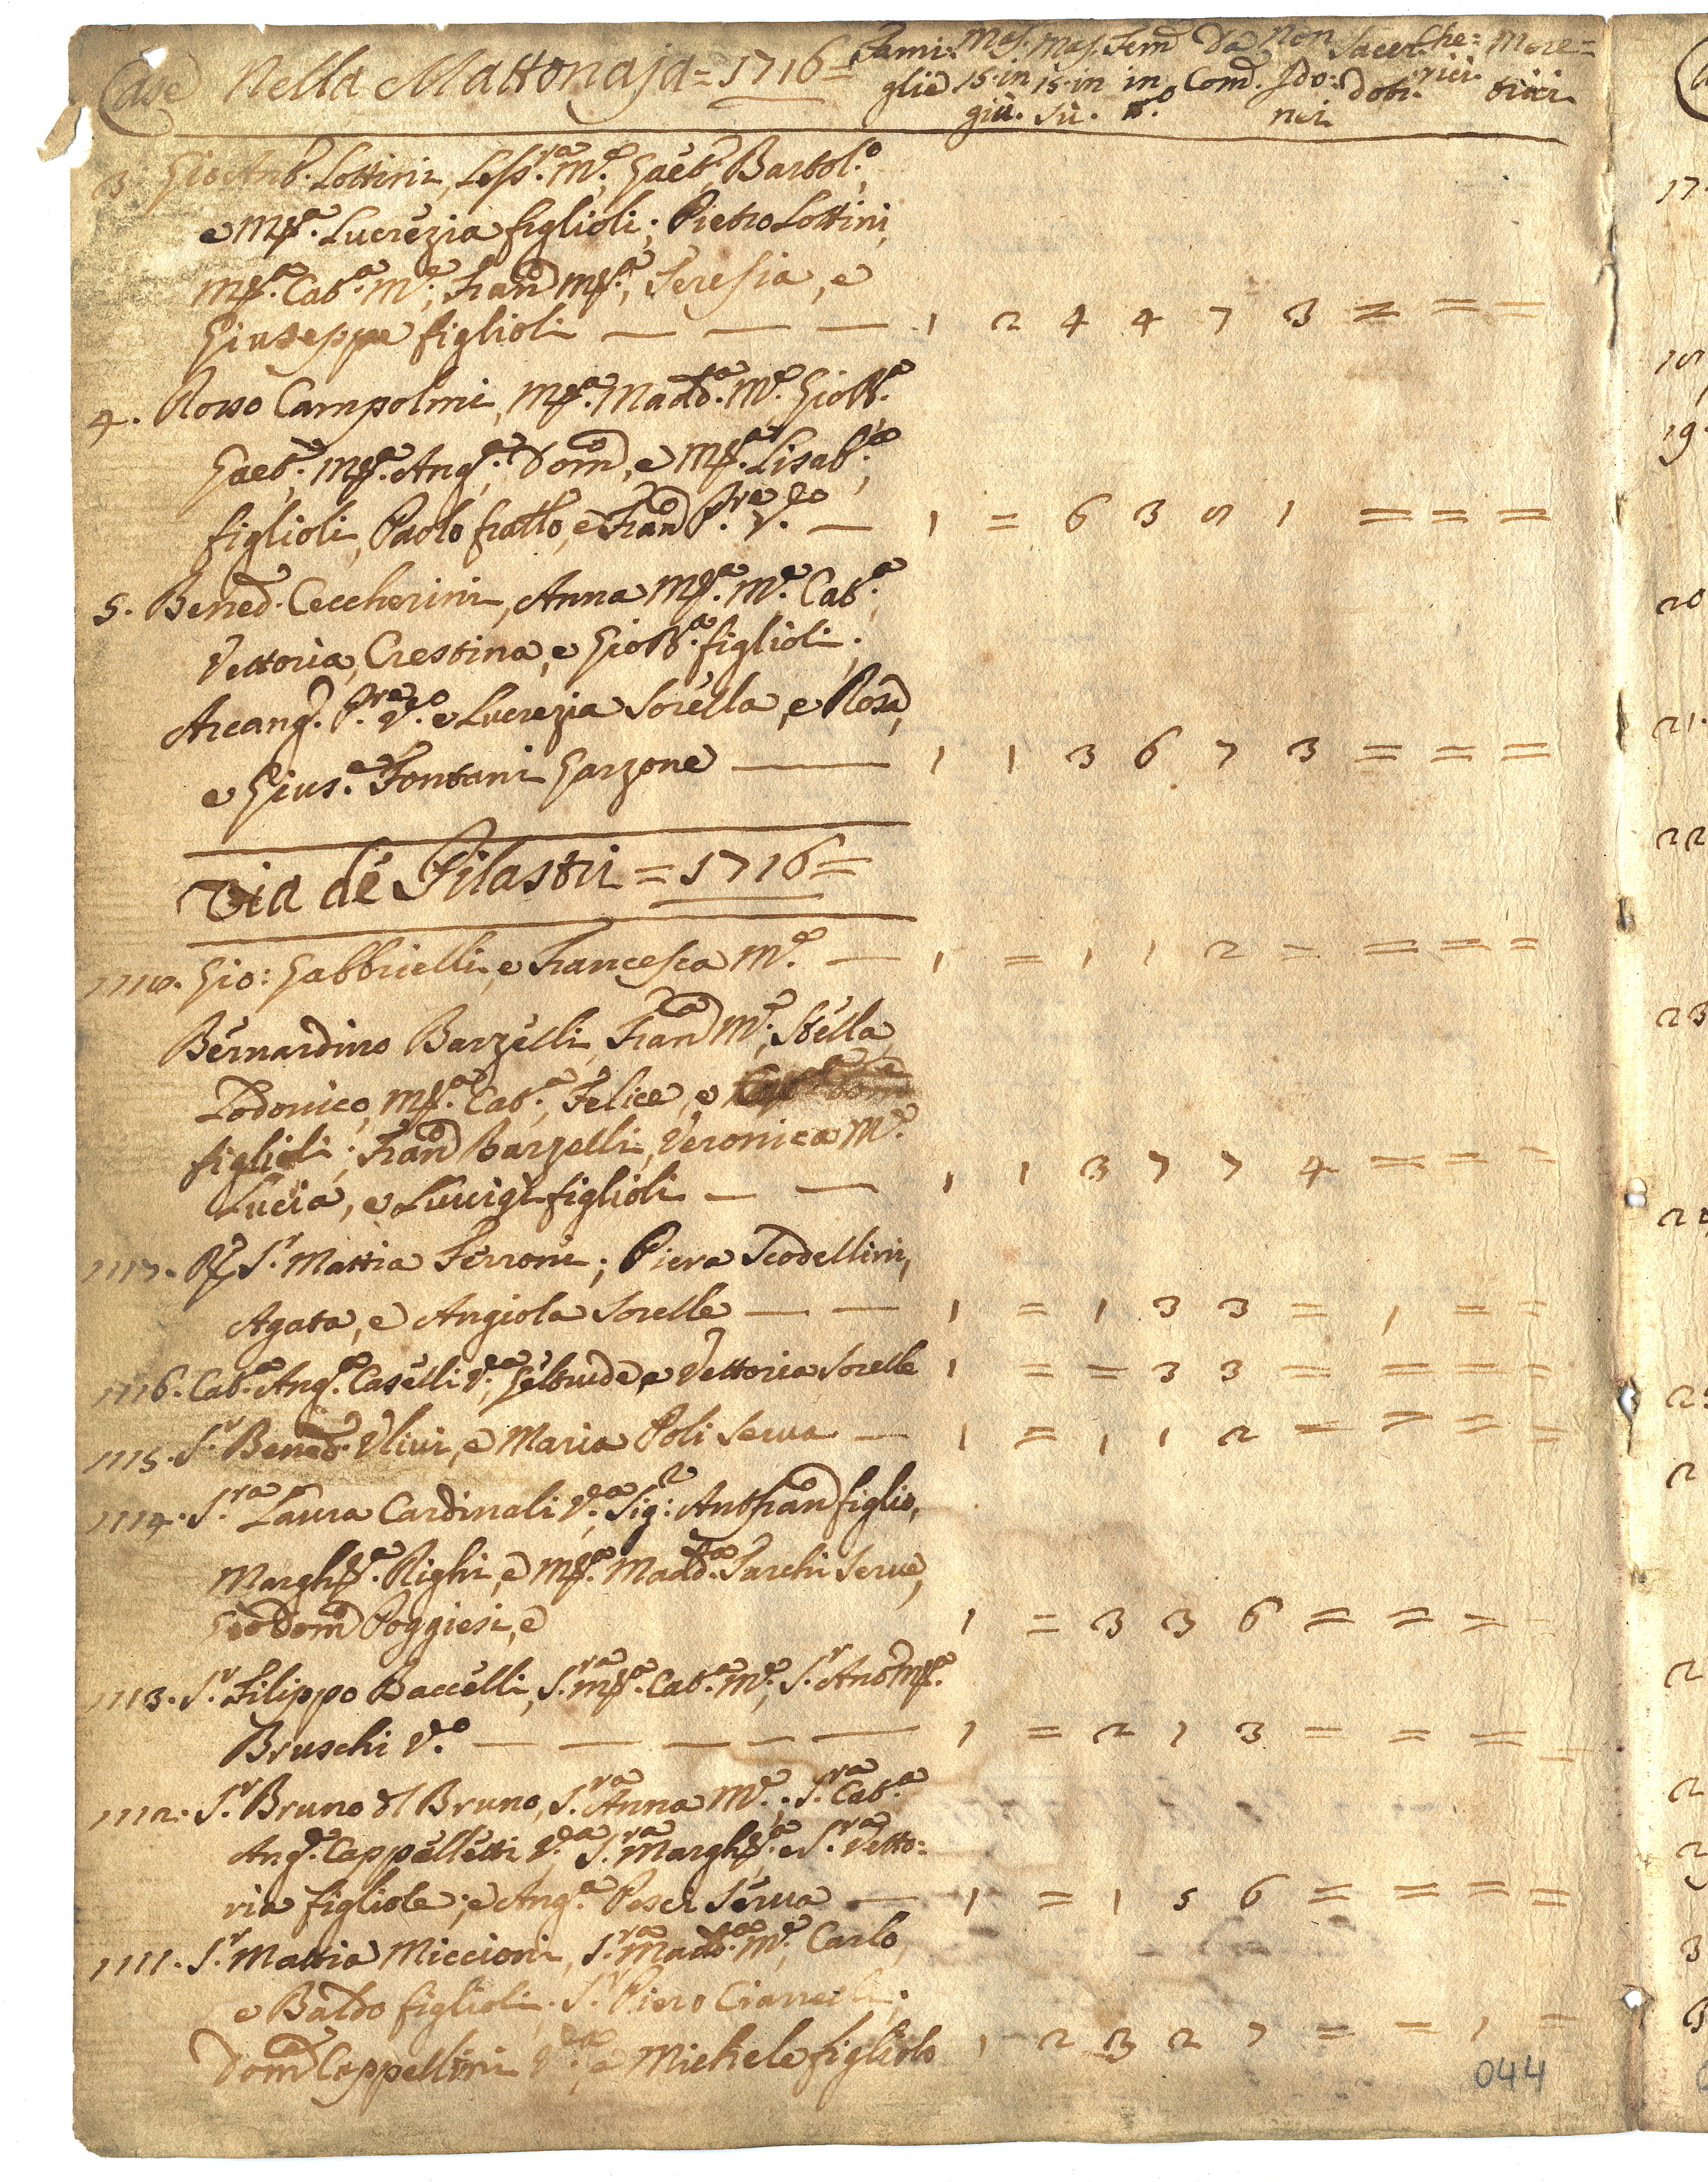 Case Nella Mattonaja = 1716 = Fami: Mas. Mas. Fem Da Non Sacer Che: Mere=
glie 15. in 15. in in Com. Ido: doti. rici. trici.
giù. sù. n.o nei
3. Gio Ant. Lottini, Less.ra M.e, Gaet. Bartol.o
e M.a Lucrezia figlioli; Pietro Lottini,
M.a Cat.a M.e; Fran.o M.a, Teresia, e
Giuseppe figlioli — — — 1 2 4 4 7 3 = = =
4. Rosso Campolmi, M.a Madd.a M.e Gio B.a
Gaet., M.a Ang.a, Dom.o, e M.a Lisab.a,
figlioli, Paolo fratello, e Fran.o P.re V.o — 1 = 6 3 5 1 = = =
5. Bened. Ceccherini, Anna M.a M.e Cat.a
Vettoria, Crestina, e Gio B.a figlioli;
Arcang. P.re V.o e Lucrezia Sorella, e Rosa,
e Gius.e Fontani Garzone — 1 1 3 6 7 3 = = =
Via de Pilastri = 1716 =
1118. Gio: Gabbrielli, e Francesca M.e — 1 = 1 1 2 = = = =
Bernardino Barzelli, Fran.a M.e, Stella,
Lodovico, M.a Cat.a, Felice, e
figlioli; Fran.o Barzelli, Veronica M.e
Lucia, e Luvigi figlioli — — 1 1 3 7 7 4 = = =
1117. S.r Mattia Ferroni; Piera Scodellini,
Agata, e Angiola Sorelle — — 1 = 1 3 3 = 1 = =
1116. Cat.a Ang.a Caselli V.a, Geltrude, e Vettoria Sorelle 1 = = 3 3 = = = =
1115. S.r Bened. Ulivi, e Maria Poli Serva — 1 = 1 1 2 = = = =
1114. S.ra Laura Cardinali V.a, Sig: Ant Fran.o figlio,
Margh.a Righi, e M.a Madd.a Tarchi Serve,
Gio Dom.o Poggiesi, e 1 = 3 3 6 = = = =
1113. S.r Filippo Baccelli, S.ra M.a Cat.a M.e, S.r Ant M.a
Bruschi V.o — — — — — 1 = 2 1 3 = = = =
1112. S.r Bruno del Bruno, S.ra Anna M.e. S.ra Cat.a
Ang. Cappelletti V.a S.ra Margh.a e S.ra Vetto:
ria figliole; e Ang.a Pesci Serva — 1 = 1 5 6 = = = =
1111. S.r Mattia Miccioni, S.ra Madd.a M.e, Carlo,
e Baldo figlioli; S.r Piero Ciannelli;
Dom.a Cappellini V.a, e Michele figliolo 1 2 3 2 7 = = 1 =
044